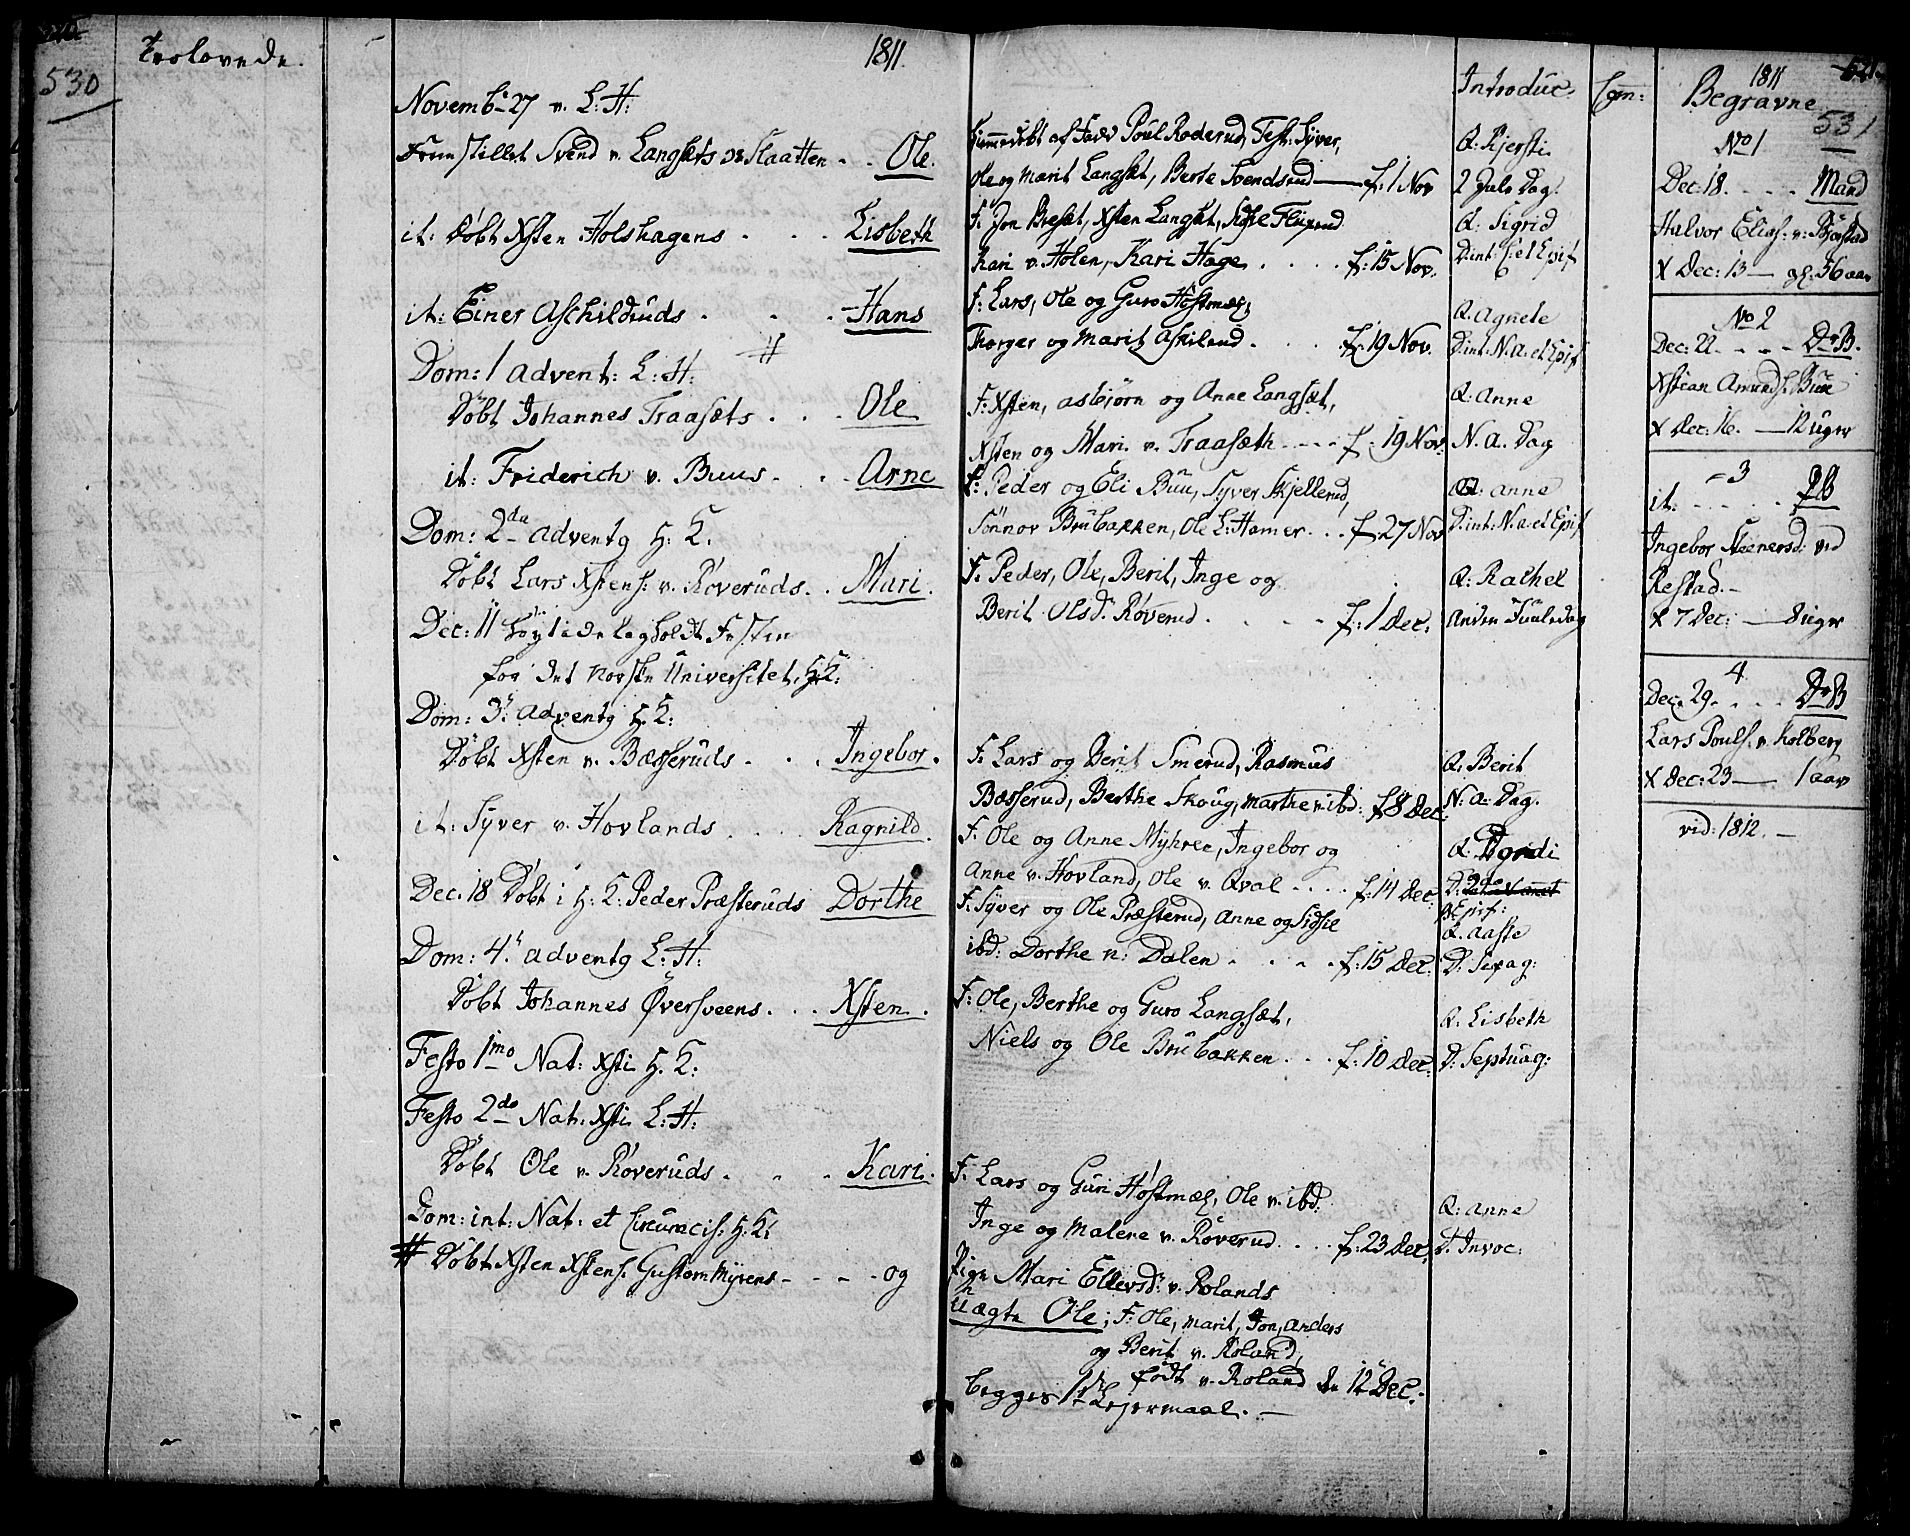 530
Trolovede.
1811.
Novemb: 27 v. L: H:
Fremstillet Svend v. Langsæts og Slaatten - . Ole.
it: Døbt Xsten Holshagens . . . Lisbeth
it: Einer Aschildruds . . . Hans
Dom: 1 Advent: L: H: #
Døbt Johannes Traasæts . . . Ole
it: Friderich v. Buus . . . Arne
Dom: 2da Adventg H: K:
Døbt Lars Xstens: v. Røveruds . . Mari.
Dec: 11 høytideligholdt Festen
for det norske Universitet, H: K:
Dom: 3: Adventg H: K:
Døbt Xsten v. Bæsseruds . . . Ingebor.
it: Syver v. Hovlands . . . Ragnild.
Dec. 18 Døbt i H: K: Peder Præsteruds Dorthe
Dom: 4: Adventg L: H:
Døbt Johannes Øversveens . . . Xsten.
Festo 1mo Nat: Xsti H: K:
Festo 2do Nat: Xsti L: H:
Døbt Ole v. Røveruds . . . Kari.
Dom: int: Nat: et Circumcis: H: K:
# Døbt Xsten Xstens: Gustom Myrens - - - . og
Hiemmedøbt af Farv Poul Roderud, Test: Syver,
Ole og Marit Langsæt, Berte Svendsrud — f: 1 Nov
F: Jon Bresæt, Xsten Langsæt, Flixrud
Kari v. Holen, Kari Hage . . . . f: 15 Nov.
F: Lars, Ole og Guro Høstmæl,
Thorger og Marit Askilrud . . . f: 19 Nov.
F: Xsten, Asbjørn og Anne Langsæt,
Xsten og Mari v. Traasæth - - - f: 19 Nov.
F: Peder og Eli Buu, Syver Skjellerud,
Sønnov Brubakken, Ole L: Hamer . . . f: 27 Nov
F: Peder, Ole, Berit, Inge og
Berit Olsd: Røverud . . . . f: 1 Dec:
F: Lars og Berit Smerud, Rasmus
Bæsserud, Berthe Skoug, Marthe v. ibd: f: 8 Dec:
F: Ole og Anne Myhree, Ingebor og
Anne v. Hovland, Ole v. Qval . . . . f: 14 Dec:
F: Syver og Ole Præsterud, Anne og Sidsie
ibd: Dorthe v: Dalen . . . . f: 15 Dec:
F: Ole, Berthe og Guro Langsæt,
Niels og Ole Brubakken . . . f: 10 Dec:
F: Lars og Guri Høstmæl, Ole v. ibd:
Inge og Malene v. Røverud . . . f: 23 Dec:
Pige Mari Ellevsd: v. Rolands
Uægte Ole; F: Ole, Marit, Jon, Anders
og Berit v. Roland,
født v. Roland den 12 Dec:
begges 1ste Lejermaal. —
Introduc.
Q. Kjersti
2 Jule Dag.
Q: Sigrid
D: int: C: et Epif
Q. Agnete
D: int: N. a. et Epif
Q: Anne
N. a. Dag
Q: Anne
D: int: N. a. et Epif
Q: Rachel
Anden Juuledag
Q. Berit
N: a: Dag.
Q:
p Epif:
Q. Aaste
D: Sexag:
Q. Lisbeth
D: Septuag:
Q: Anne
D. Invoc:
Com:
1811
Begravne
531
No 1
Dec: 18. . . . . Mand
Halvor Elias: v: Bjørstad
X Dec: 13 — gl: 56 aar
No 2
Dec: 22. - . - . D.B.
Xstian Amunds: Buu
X Dec: 16. — 12 uger
- 3
it: . - . . . PB
Ingebor Steenersd: ved
Restad. -
X 7 Dec: — 8 uger
4
Dec. 29. . . . . D.B
Lars Pouls: v. Kolberg
X Dec: 23 — 1 aar
vid: 1812. —